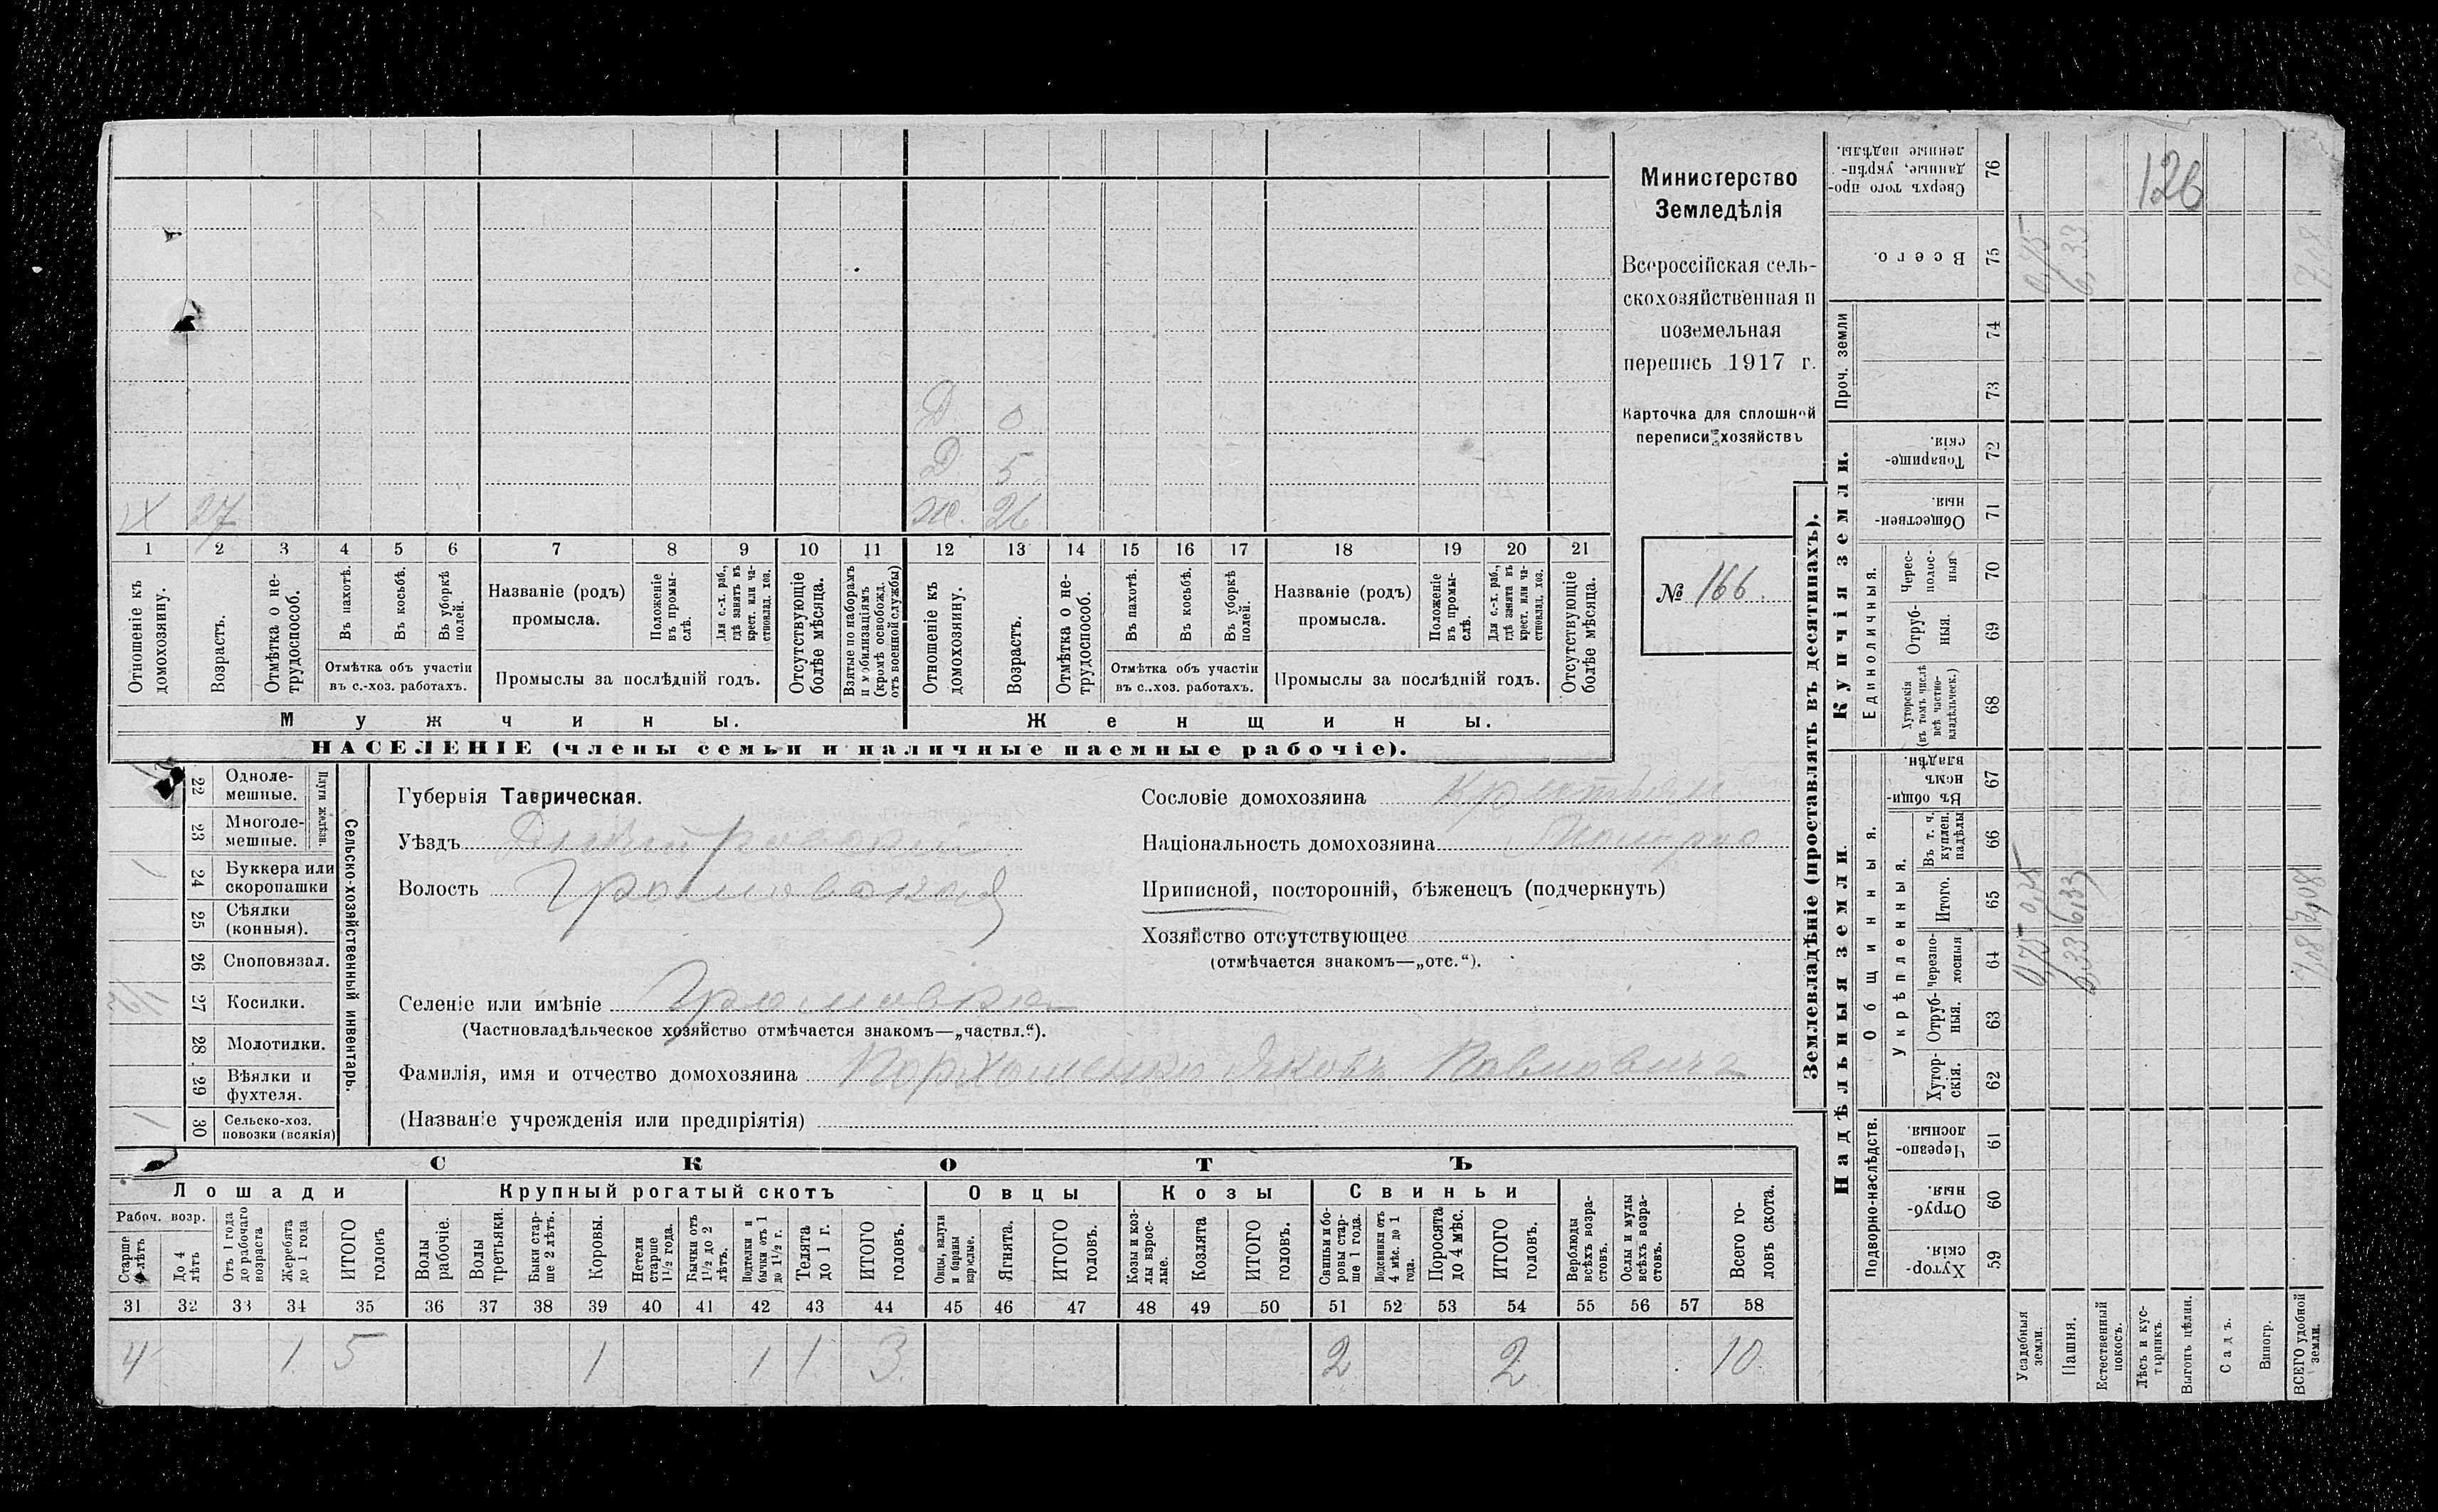 126
Министерство
Земледѣлія
Всероссійская сель-
скохозяйственная и
поземельная
перепись 1917 г.
Карточка для сплошной
переписи хозяйствъ
№ 166.
Д 0
Д 5
Х 27 Ж. 26
1 2 3 4 5 6 7 8 9 10 11 12 13 14 15 16 17 18 19 20 21
Отношеніе къ домохозяину.
Возрастъ.
Отмѣтка о не-трудоспособ.
Въ пахотѣ.
Въ косьбѣ.
Въ уборкѣ полей.
Отмѣтка объ участіи
въ с.-хоз. работахъ.
Названіе (родъ)
промысла.
Положеніе въ промы-слѣ.
Для с.-х. раб., гдѣ занятъ въ крест. или ча-стновлад. хоз.
Промыслы за послѣдній годъ.
Отсутствующіе болѣе мѣсяца.
Взятые по наборамъ и мобилизаціямъ (кромѣ освобожд. отъ военной службы)
Отношеніе къ домохозяину.
Возрастъ.
Отмѣтка о не-трудоспособ.
Въ пахотѣ.
Въ косьбѣ.
Въ уборкѣ полей.
Отмѣтка объ участіи
въ с.-хоз. работахъ.
Названіе (родъ)
промысла.
Положеніе въ промы-слѣ.
Для с.-х. раб., гдѣ занята въ крест. или ча-стновлад. хоз.
Промыслы за послѣдній годъ.
Отсутствующіе болѣе мѣсяца.
Мужчины.
Женщины.
НАСЕЛЕНІЕ (члены семьи и наличные наемные рабочіе).
Сельско-хозяйственный инвентарь.
Плуги желѣзн.
22 Одноле-мешные.
23 Многоле-мешные.
1 24 Буккера или скоропашки
25 Сѣялки (конныя).
26 Сноповязал.
1/2 27 Косилки.
28 Молотилки.
29 Вѣялки и фухтеля.
1 30 Сельско-хоз. повозки (всякія)
Губернія Таврическая.
Уѣздъ Днѣпровскій
Волость Громовская
Селеніе или имѣніе Громовка
(Частновладѣльческое хозяйство отмѣчается знакомъ—„частвл.“).
Фамилія, имя и отчество домохозяина Пархоменко Яковъ Павловичъ
(Названіе учрежденія или предпріятія)
Сословіе домохозяина
Національность домохозяина
Приписной, посторонній, бѣженецъ (подчеркнуть)
Хозяйство отсутствующее
(отмѣчается знакомъ—„отс.“).
СКОТЪ
Лошади
Крупный рогатый скотъ
Овцы
Козы
Свиньи
Рабоч. возр.
Старше 4 лѣтъ
До 4 лѣтъ
Отъ 1 года до рабочаго возраста
Жеребята до 1 года
ИТОГО головъ
Волы рабочіе.
Волы третьяки.
Быки стар-ше 2 лѣтъ.
Коровы.
Нетели старше 1 1/2 года.
Бычки отъ 1 1/2 до 2 лѣтъ.
Подтелки и бычки отъ 1 до 1 1/2 г.
Телята до 1 г.
ИТОГО головъ.
Овцы, валухи и бараны взрослые.
Ягнята.
ИТОГО головъ.
Козы и коз-лы взрос-лые.
Козлята
ИТОГО головъ.
Свиньи и бо-ровы стар-ше 1 года.
Подсвинки отъ 4 мѣс. до 1 года.
Поросята до 4 мѣс.
ИТОГО головъ.
Верблюды всѣхъ возра-стовъ.
Ослы и мулы всѣхъ возра-стовъ.
Всего го-ловъ скота.
31 32 33 34 35 36 37 38 39 40 41 42 43 44 45 46 47 48 49 50 51 52 53 54 55 56 57 58
4 1 5 1 1 1 3 2 2 10
Землевладѣніе (проставлять въ десятинахъ).
Надѣльныя земли.
Купчія земли.
Проч. земли
Подворно-наслѣдств.
Общинныя.
Укрѣпленныя.
Единоличныя.
Сверхъ того про-данные, укрѣп-ленные надѣлы. 76
Всего. 75 0,75 6,33 7,08
74
73
Товарище-скія. 72
Обществен-ныя. 71
Черес-полос-ныя 70
Отруб-ныя. 69
Хуторскія (въ томъ числѣ всѣ частно-владѣльческ.) 68
Въ общи-номъ владѣн. 67
Въ т. ч. куплен. надѣлы 66
Итого. 65 0,75 6,33 7,08
Черезпо-лосныя 64 0,75 6,33 7,08
Отруб-ныя. 63
Хутор-скія. 62
Черезпо-лосныя. 61
Отруб-ныя. 60
Хутор-скія. 59
Усадебныя земли.
Пашня.
Естественный покосъ.
Лѣсъ и кус-тарникъ.
Выгонъ цѣлин.
Садъ.
Виногр.
ВСЕГО удобной земли.